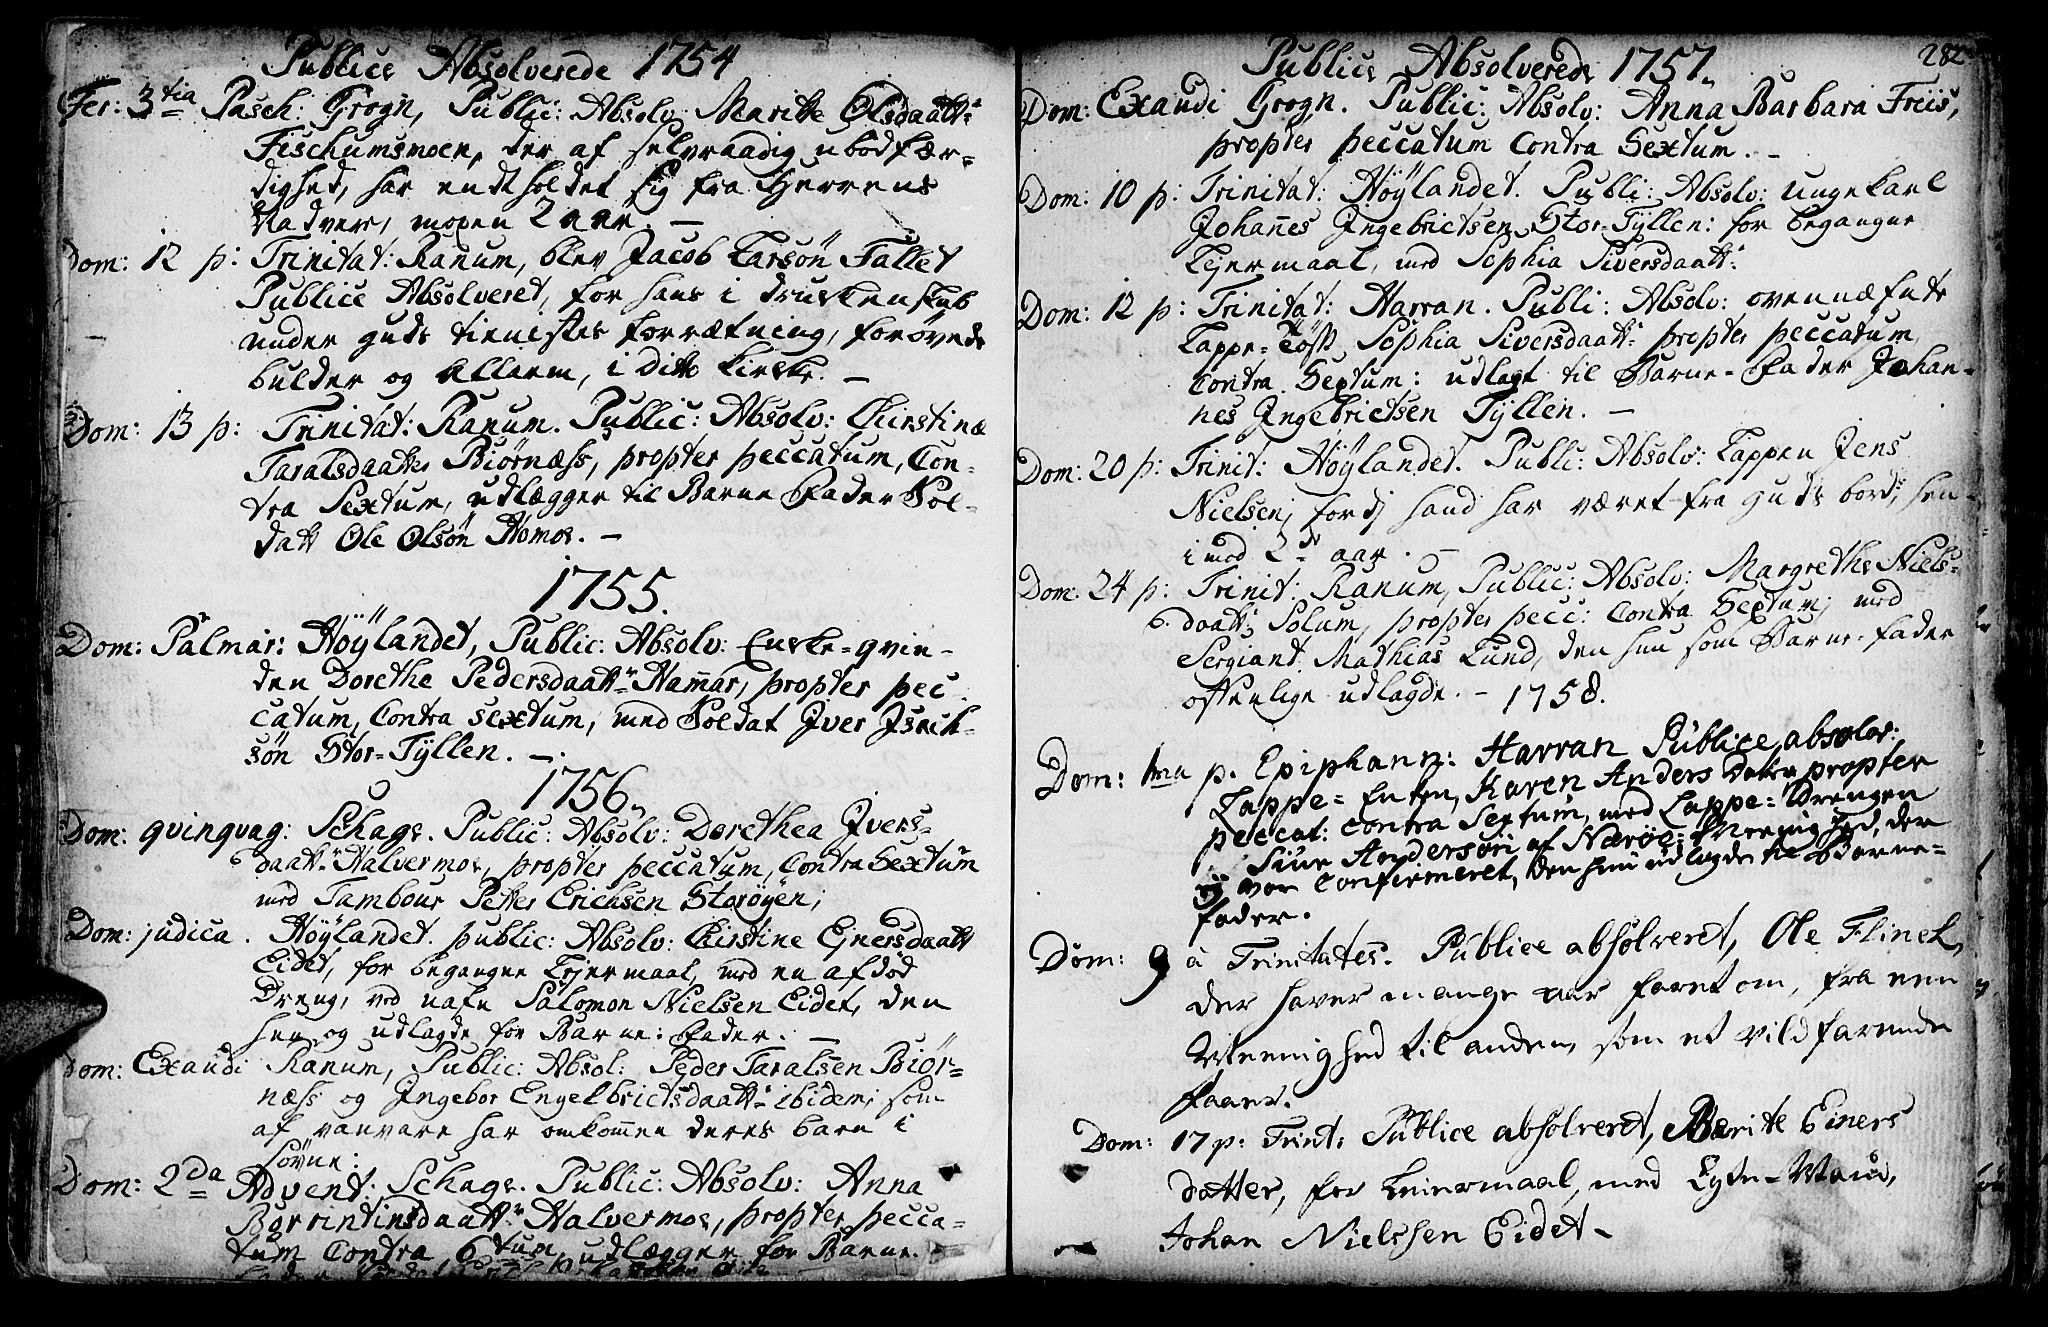 Publice Absolverede 1754
Fer: 3tia Pasch: Grogn, Public: Absolv Maritte Olsdaatt:
Fischumsmoen, der af selvraadig ubodfær-
dighed, har endtholdet sig fra Herrens
Nadver, moxen 2 aar. —
Dom: 12 p: Trinitat: Ranum, blev Jacob Larsøn Fallet
Publice Absolveret, for hans i druckenskab
under guds tienistes forrætning, forøvede
bulder og Allarm, i ditto Kirke. —
Dom: 13 p: Trinitat: Ranum. Public: Absolv: Chirstinæ
Taralsdaatter Biørnæss, propter peccatum, Con-
tra Sextum, udlægger til Barne Fader Sol-
datt Ole Olsøn Homoe. —
1755.
Dom: Palmar: Höylandet, Public: Absolv: Encke-qvin-
den Dorethe Pedersdaatt: Hammar, propter pec
catum, Contra sextum, med Soldat Iver Isach-
søn Stor-Tyllen. —.
1756.
Dom: qvinqvag: Schage. Public: Absolv: Dorethea Ivers-
daatt: Halvermoe, propter peccatum, Contra Sextum
med Tambour Petter Erichsen Storøyen;
Dom: judica. Höylandet. public: Absolv: Chirstine Ejnersdaatt
Eidet, for begangne Lejermaal, med en afdød
Dreng, ved nafn Salomon Nielsen Eidet, den
hun og udlagde for Barne: Fader. —
Dom: Exaudi Ranum, Public: Absol: Peder Taralsen Biør-
næss og Ingebor Engelbrictsdaatt: ibidem; som
af vanvare har omkommen deres barn i
søvne:
Dom: 2da Advent: Schage. Public: Absolv: Anna
Borrintinsdaatt: Halvermoe, propter pecca-
tum Contra 6tum, udlægger for Barne.
Publice Absolverede 1757. 282
Dom: Exaudi Grogn. Public: Absolv: Anna Barbara Friis,
propter peccatum Contra Sextum. —
Dom: 10 p: Trinitat: Höylandet. Publi: Absolv: unge karl
Johannes Ingebrictsen Stor-Tyllen: for begangne
Lejermaal, med Sophia Siversdaatt:
Dom: 12 p: Trinitat: Harran. Publi: Absolv: ovennæfnte
Lappe-Tøss Sophia Siversdaatt: propter peccatum
Contra Sextum: udlagt til Barne-Fader Johan-
nes Ingebrictsen Tyllen. —
Dom: 20 p: Trinit: Höylandet. Public: Absolv: Lappen Jens
Nielsen; fordj hand har været fra guds bord, hen-
imod 2de aar. —
Dom: 24 p: Trinit: Ranum, Public: Absolv: Margrethe Niels-
daatt: Solum, propter pecc: Contra Sextum; med
Sergiant Mathias Lund, den hun som Barne-fader
offentlige udlagde. — 1758.
Dom: 1ma p. Epiphann: Harran Publice absolv:
Lappe-Enken, Karen Anders Datter propter
peccat: contra Sextum, med Lappe-Drengen
Siur Andersøn af Nærøe Meenighed, der
ey var Confirmeret, den hun udlagde til Barne-
fader.
Dom: 9 à Trinitates. Publice absolveret, Ole Flinck,
der haver mange aar faret om, fra een
Meenighed til anden, som et vildfarende
faaer.
Dom: 17 p: Trint: Publice absolveret, Berite Einers
datter, for Leiermaal, med Egte-Mand,
Johan Nielssen Eidet —